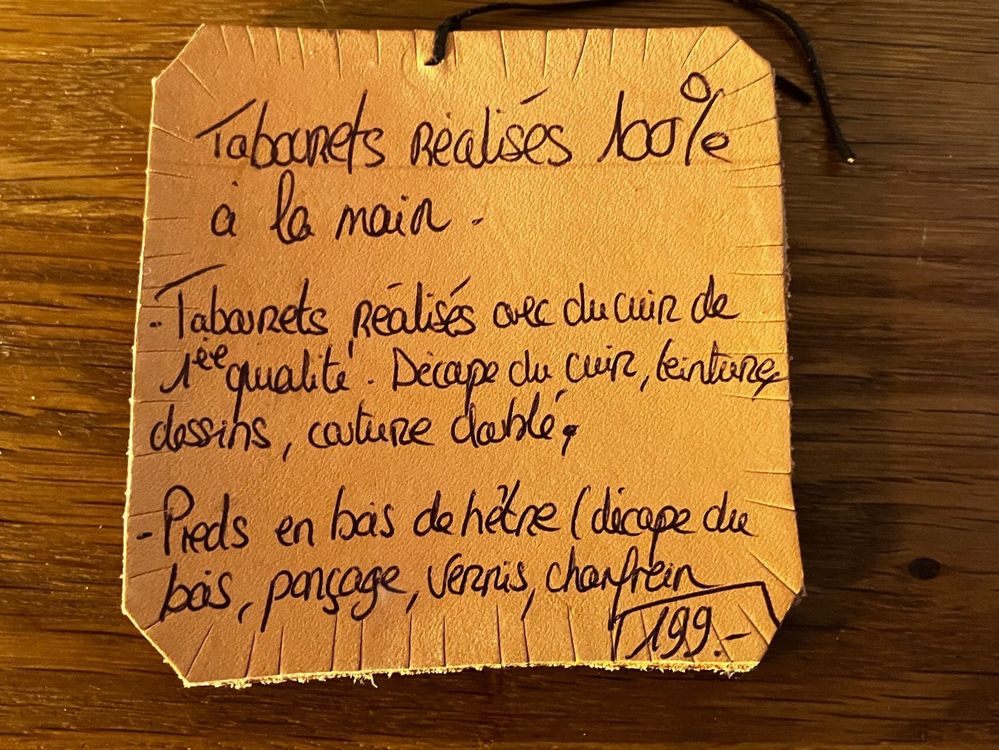 Tabourets réalisés 100%
à la main -
- Tabourets réalisés avec du cuir de
1ère qualité. Décape du cuir, teinture,
dessins, couture doublé,
- Pieds en bois de hêtre (décape du
bois, ponçage, vernis, chanfrein
199.-